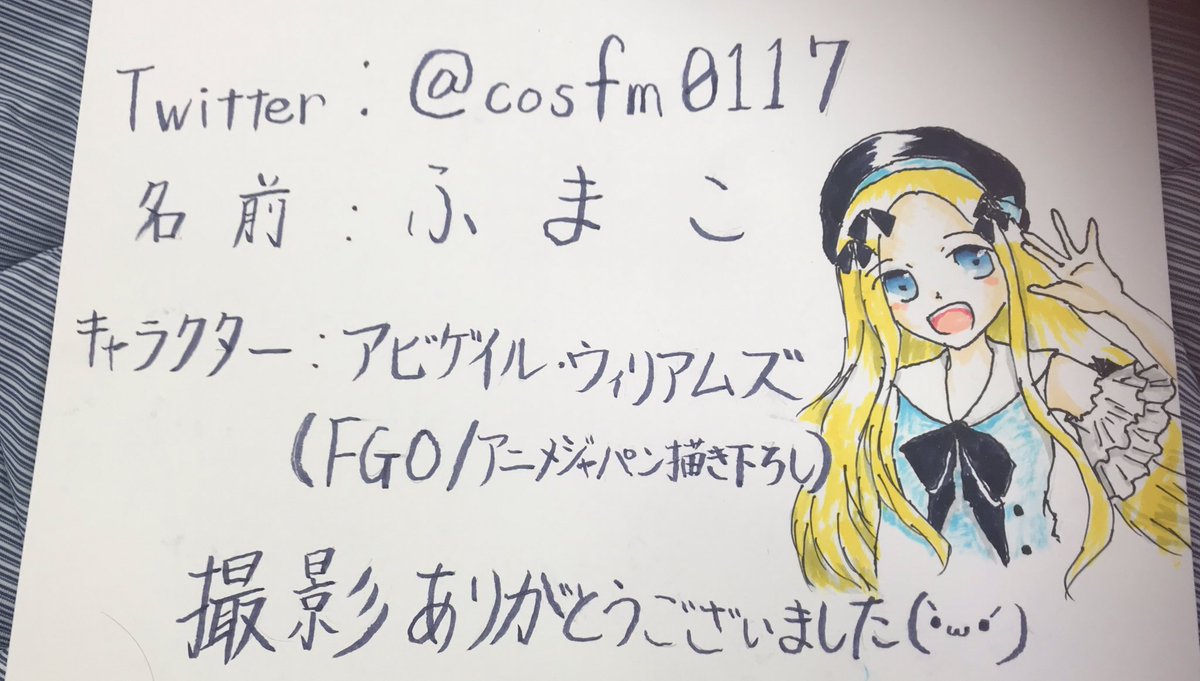 Twitter : @cosfm0117
名前 : ふまこ
キャラクター : アビゲイル・ウィリアムズ
(FGO/アニメジャパン描き下ろし)
撮影ありがとうございました(`•ω•´)